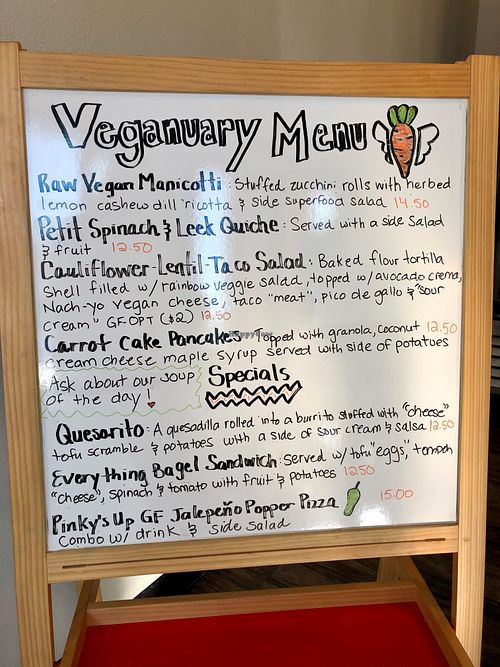 Veganuary Menu
Raw Vegan Manicotti: Stuffed zucchini rolls with herbed
lemon cashew dill 'ricotta & side superfood salad 14.50
Petit Spinach & Leek Quiche: Served with a side Salad
& fruit 12.50
Cauliflower-Lentil-Taco Salad: Baked flour tortilla
Shell filled w/ rainbow veggie salad, topped w/ avocado crema,
Nach-yo vegan cheese, taco "meat", pico de gallo & "sour
cream" GF-OPT ($2) 12.50
Carrot Cake Pancakes - Topped with granola, coconut 12.50
cream cheese maple syrup served with side of potatoes
Ask about our soup
of the day!
Specials
Quesorito: A quesadilla rolled into a burrito stuffed with "cheese"
tofu scramble & potatoes with a side of sour cream & salsa 12.50
Everything Bagel Sandwich: Served w/ tofu "eggs", tempeh
"cheese", spinach & tomato with fruit & potatoes 12.50
Pinky's Up GF Jalepeño Popper Pizza 15.00
Combo w/ drink & side salad